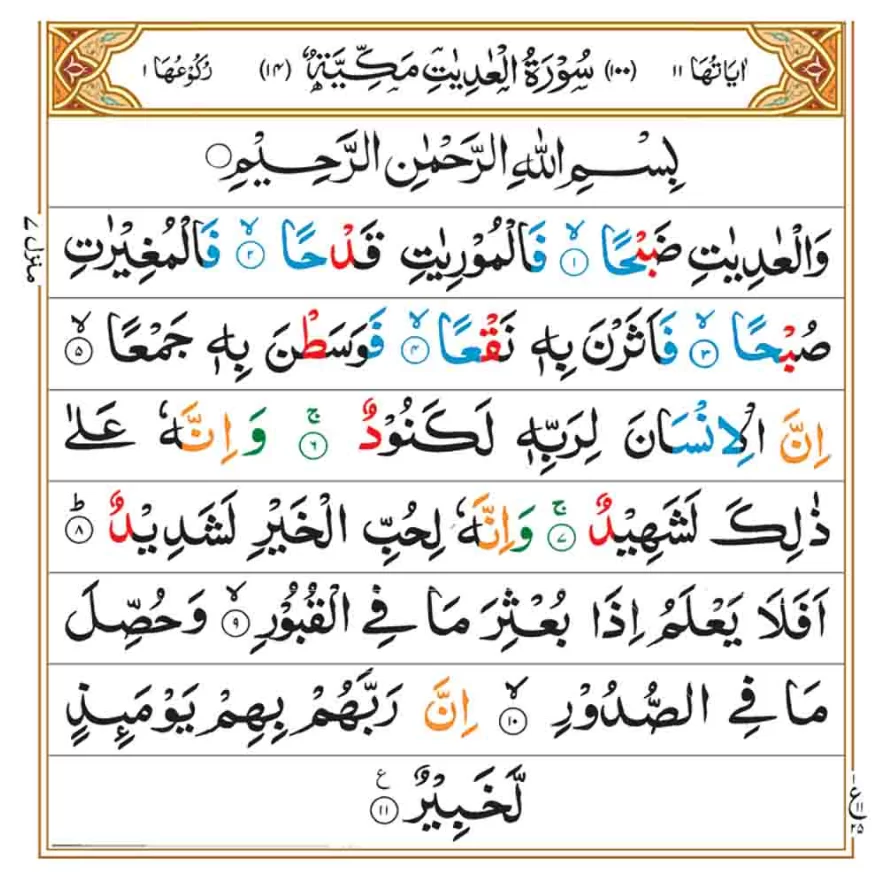 اٰيَاتُهَا ١١ (١٠٠) سُوْرَةُ الْعٰدِيٰتِ مَكِّيَّةٌ (١٤) رُكُوْعُهَا ١
بِسْمِ اللّٰهِ الرَّحْمٰنِ الرَّحِيْمِ ۝
وَالْعٰدِيٰتِ ضَبْحًا ۙ﴿١﴾ فَالْمُوْرِيٰتِ قَدْحًا ۙ﴿٢﴾ فَالْمُغِيْرٰتِ
صُبْحًا ۙ﴿٣﴾ فَاَثَرْنَ بِهٖ نَقْعًا ۙ﴿٤﴾ فَوَسَطْنَ بِهٖ جَمْعًا ۙ﴿٥﴾
اِنَّ الْاِنْسَانَ لِرَبِّهٖ لَكَنُوْدٌ ۚ﴿٦﴾ وَاِنَّهٗ عَلٰى
ذٰلِكَ لَشَهِيْدٌ ۚ﴿٧﴾ وَاِنَّهٗ لِحُبِّ الْخَيْرِ لَشَدِيْدٌ ؕ﴿٨﴾
اَفَلَا يَعْلَمُ اِذَا بُعْثِرَ مَا فِي الْقُبُوْرِ ۙ﴿٩﴾ وَحُصِّلَ
مَا فِي الصُّدُوْرِ ۙ﴿١٠﴾ اِنَّ رَبَّهُمْ بِهِمْ يَوْمَىِٕذٍ
لَّخَبِيْرٌ ﴿١١﴾ ع
منزل ٧
ع ١١ ٢٥